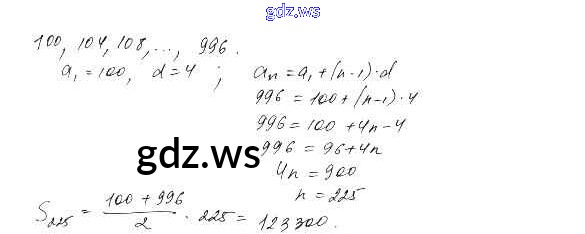 gdz.ws
100, 104, 108, ..., 996.
a₁ = 100, d = 4 ; aₙ = a₁ + (n-1)·d
996 = 100 + (n-1)·4
996 = 100 + 4n - 4
gdz.ws
996 = 96 + 4n
4n = 900
n = 225
S₂₂₅ = (100 + 996)/2 · 225 = 123300.